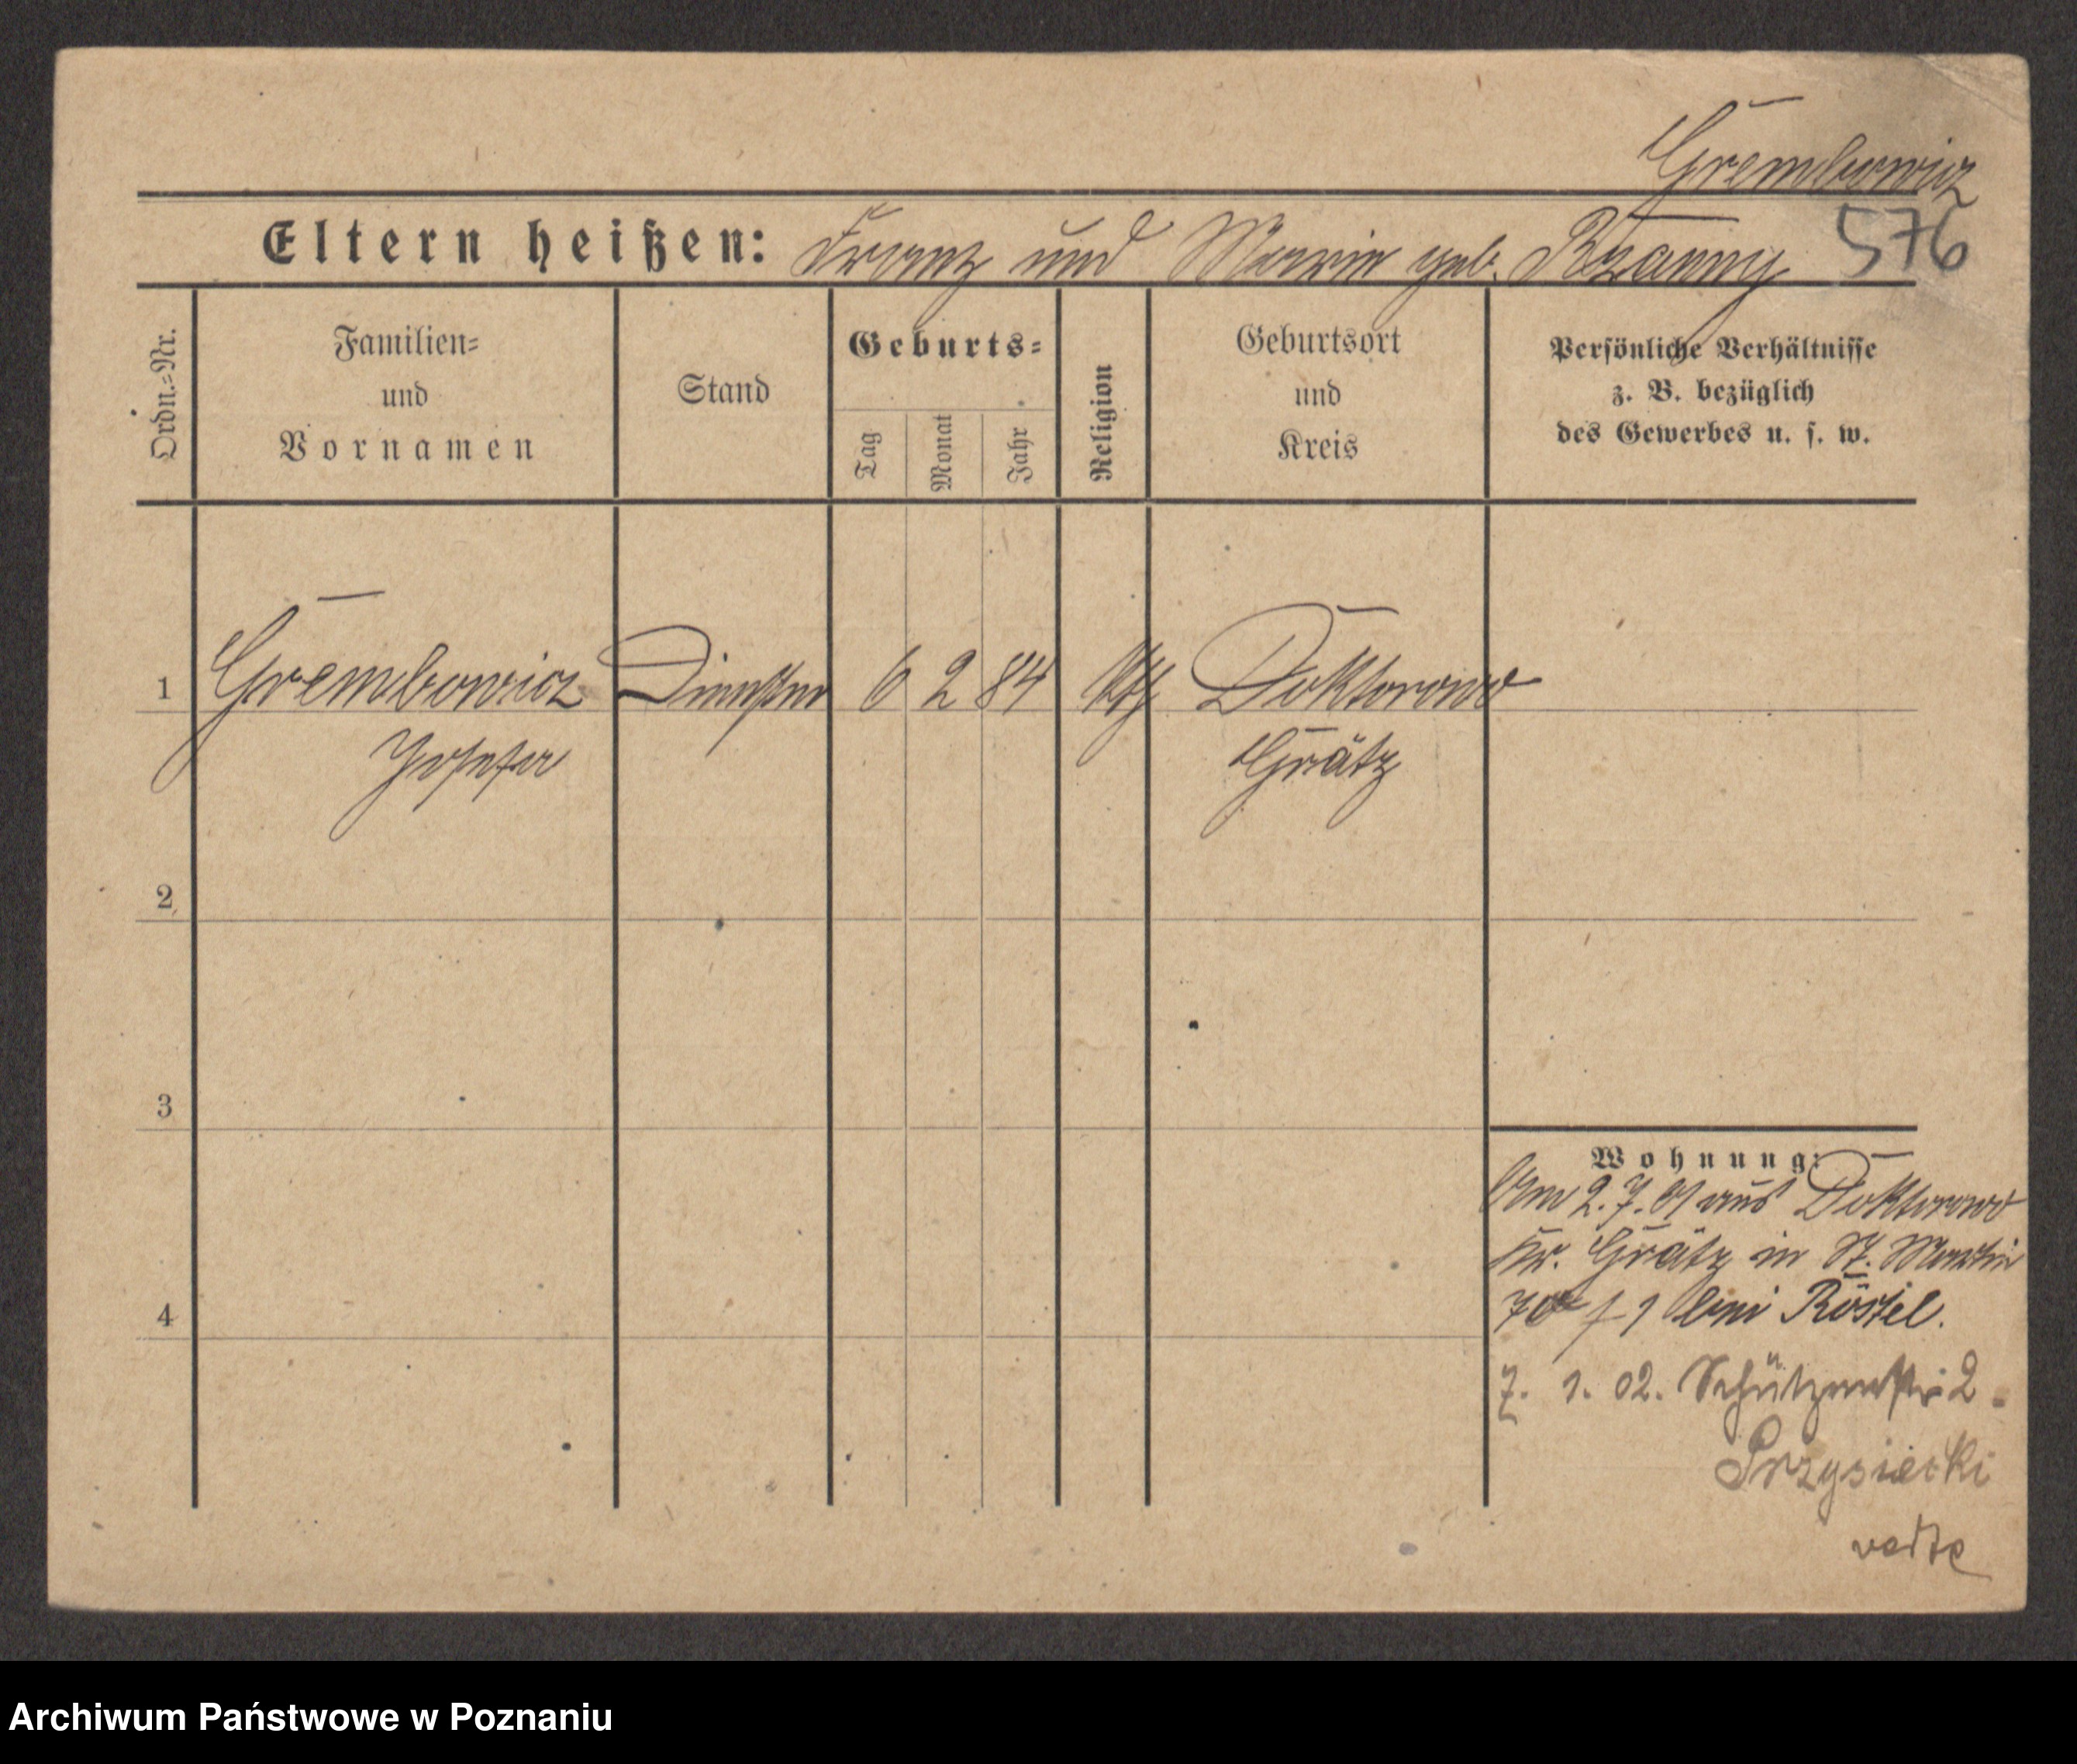 Grembowicz
576
Eltern heißen: Franz und Marie geb. Rzanny
Ordn.=Nr.
Familien=
und
Vornamen
Stand
Geburts=
Tag
Monat
Jahr
Religion
Geburtsort
und
Kreis
Persönliche Verhältnisse
z. B. bezüglich
des Gewerbes u. s. w.
1 Grembowicz 6 2 84 kth Doktorowo
Josefa Grätz
2
3
4
Wohnung:
Am 2.7.01 aus Doktorowo
Kr. Grätz in St. Martin
70 bei Röstel.
7. 1. 02. Schützenstr 2
Przysiecki
verte
Archiwum Państwowe w Poznaniu